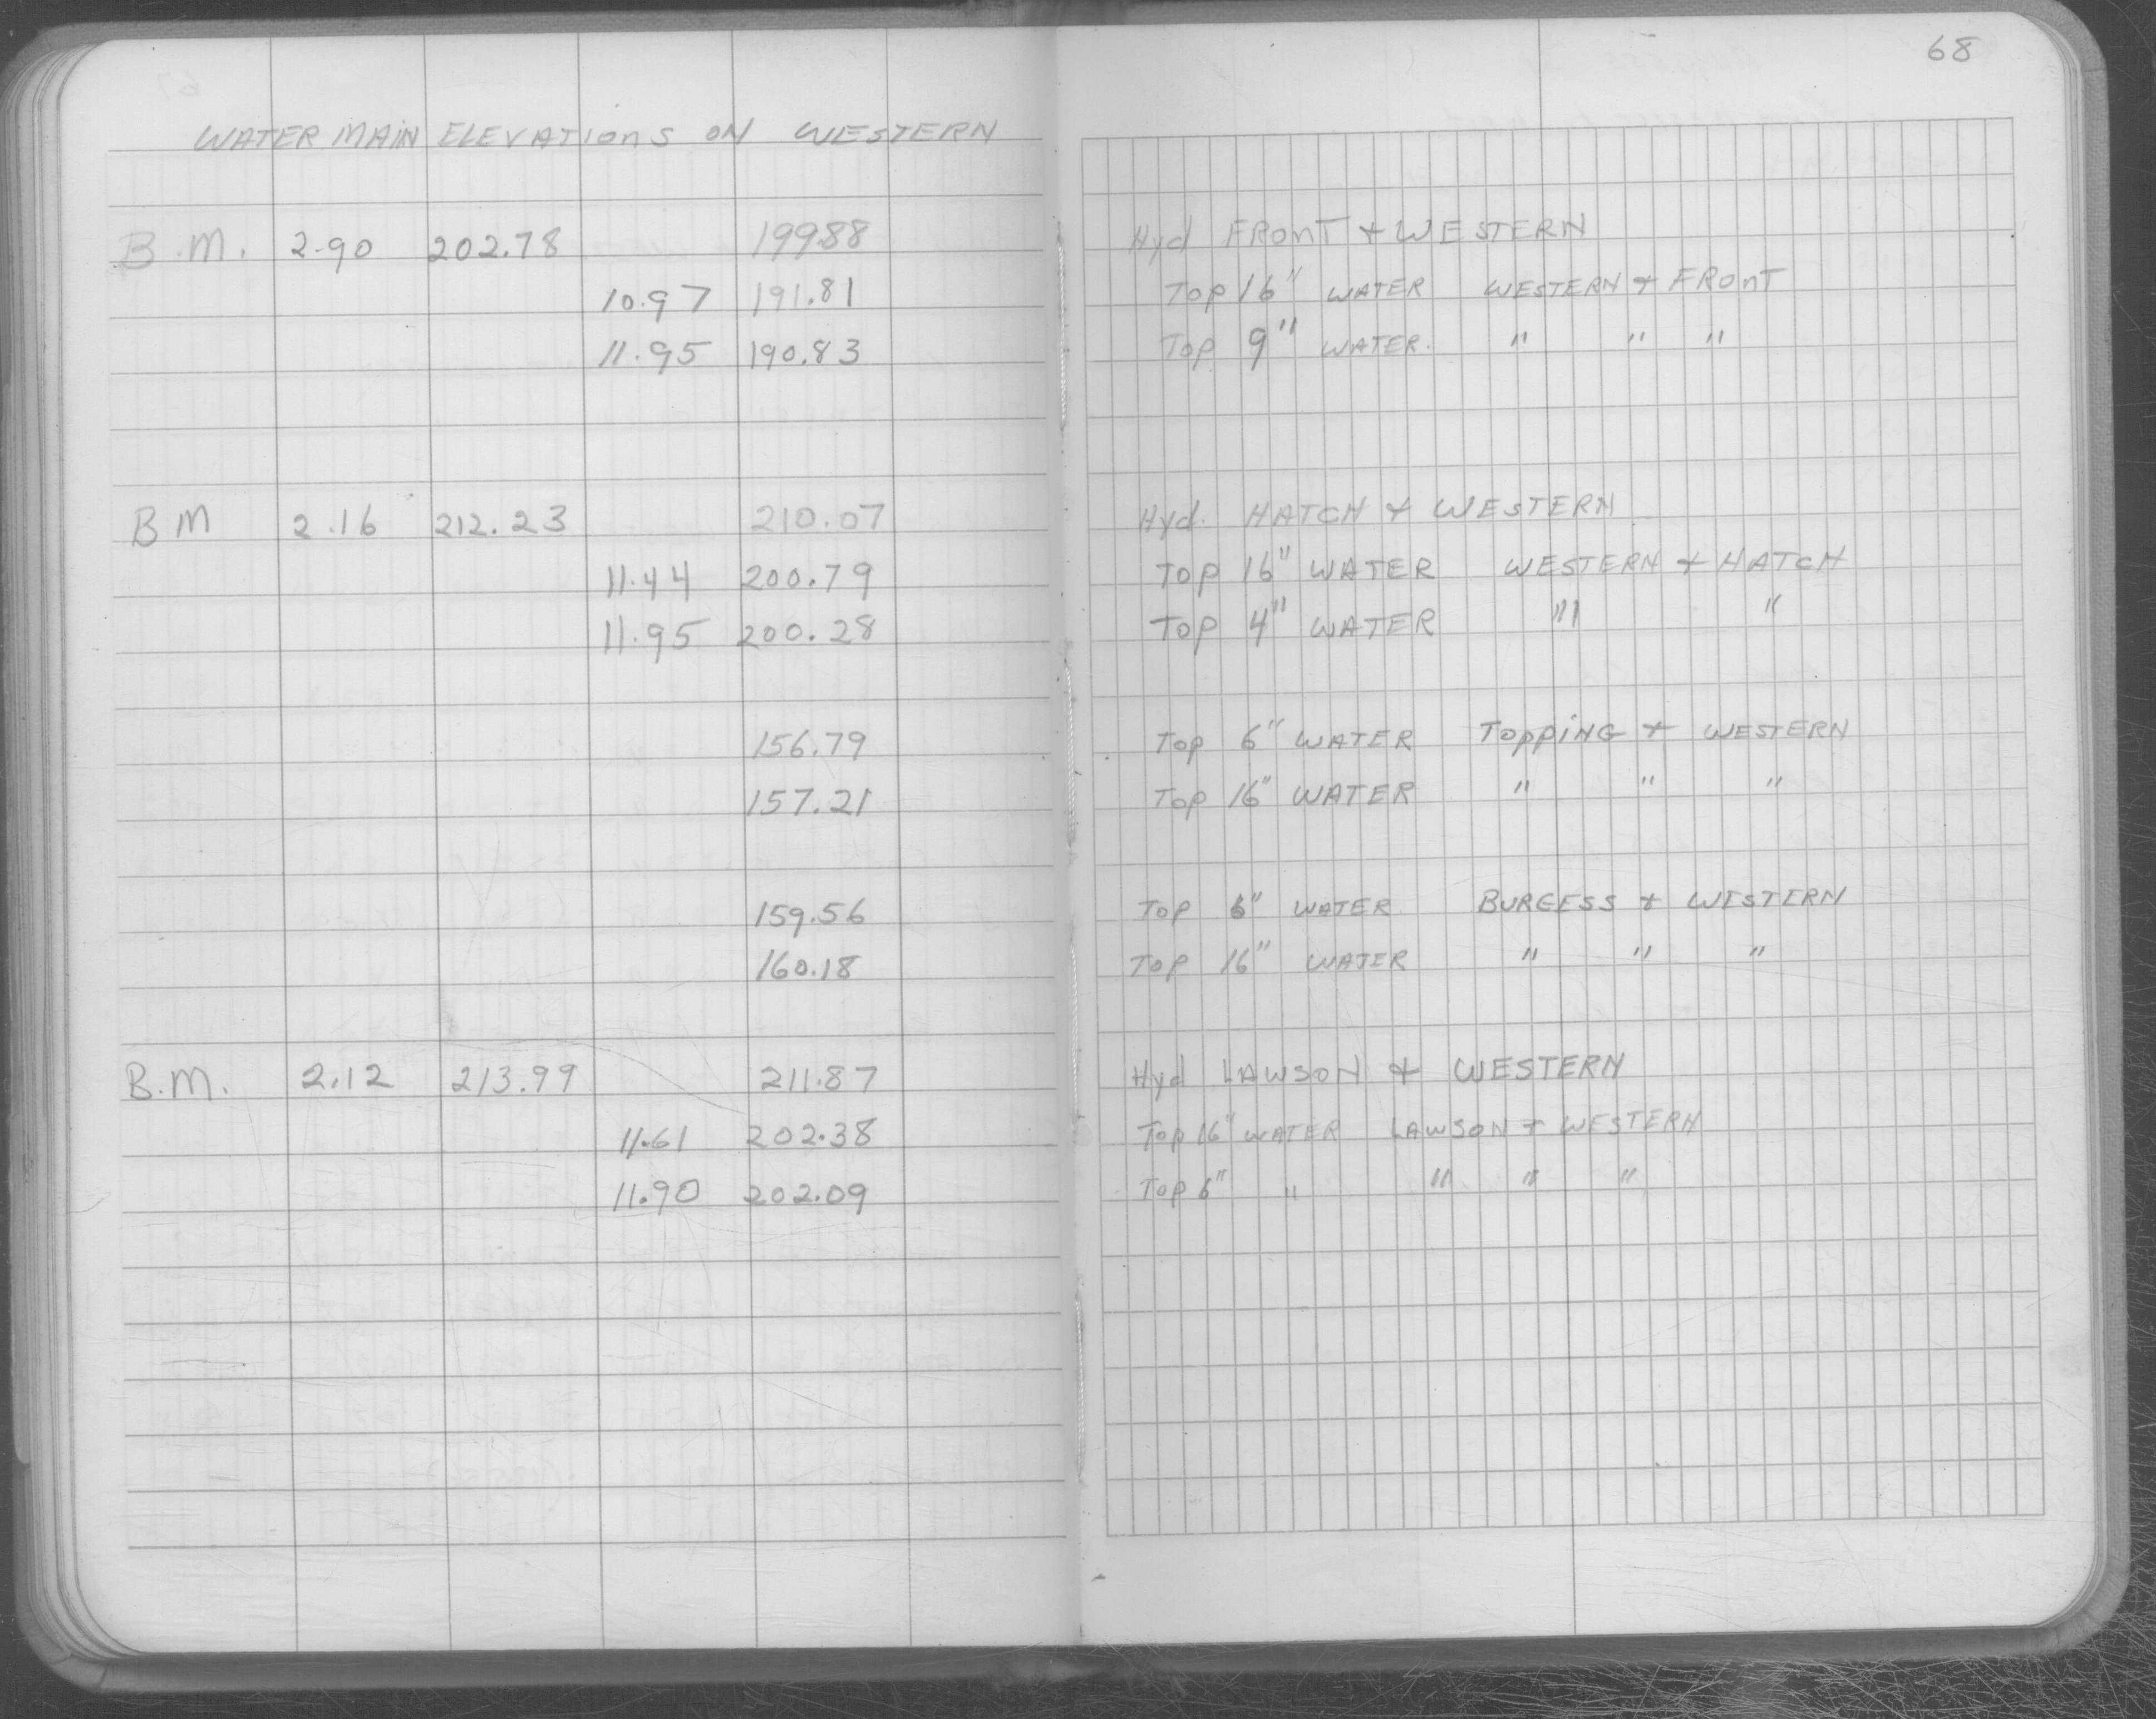 68
WATER MAIN ELEVATIONS ON WESTERN
B.M. 2.90 202.78 199.88 Hyd FRONT + WESTERN
10.97 191.81 Top 16" WATER WESTERN + FRONT
11.95 190.83 Top 9" WATER. " " "
B M 2.16 212.23 210.07 Hyd. HATCH + WESTERN
11.44 200.79 Top 16" WATER WESTERN + HATCH
11.95 200.28 Top 4" WATER " "
156.79 Top 6" WATER TOPPING + WESTERN
157.21 Top 16" WATER " " "
159.56 Top 6" WATER BURGESS + WESTERN
160.18 Top 16" WATER " " "
B.M. 2.12 213.99 211.87 Hyd LAWSON + WESTERN
11.61 202.38 Top 16" WATER LAWSON + WESTERN
11.90 202.09 Top 6" " " " "